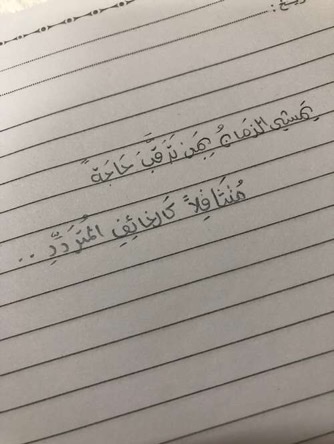 يَمشي الزمانُ بِمَن تَرَقَّبَ حَاجَةً
مُتَثَاقِلاً كَالخائِفِ المُتَردِّدِ ..